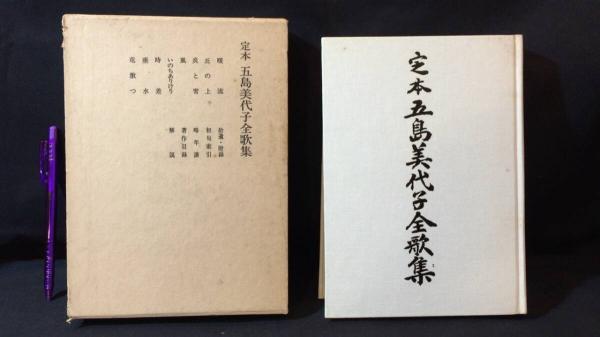 定本 五島美代子全歌集
暖流
丘の上
炎と雪
風
いのちありけり
時差
垂水
花激つ
拾遺・附録
初句索引
略年譜
著作目録
解説
定本五島美代子全歌集